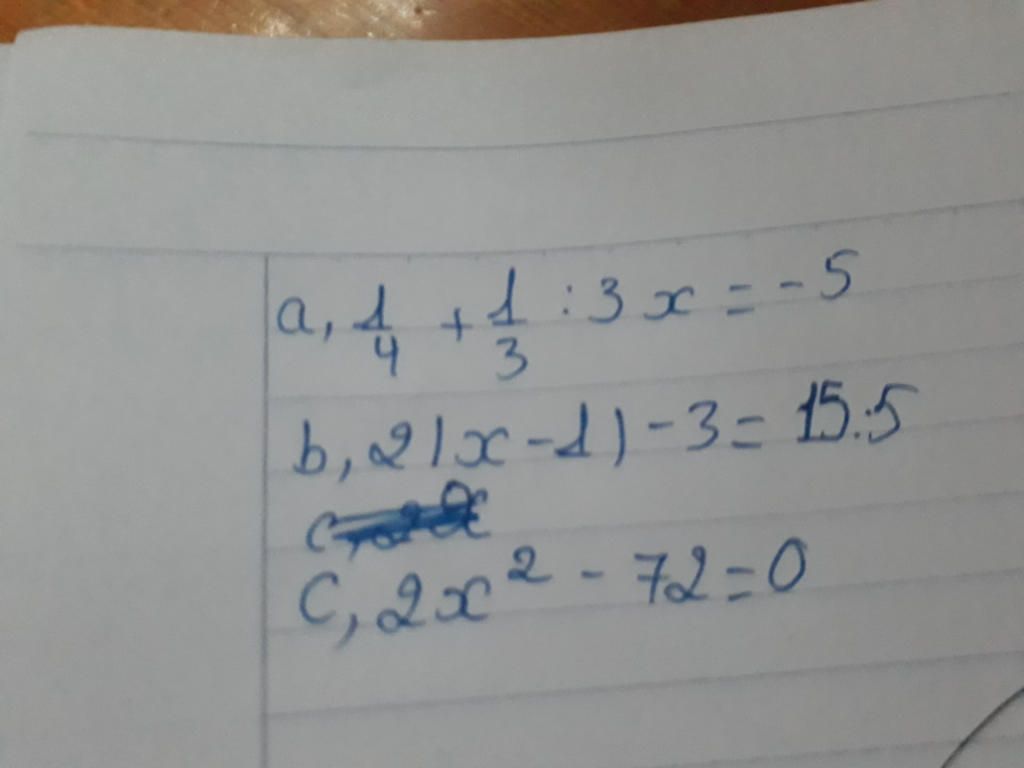 a, 1/4 + 1/3 : 3x = -5
b, 2|x - 1| - 3 = 15:5
C, 2x² - 72 = 0